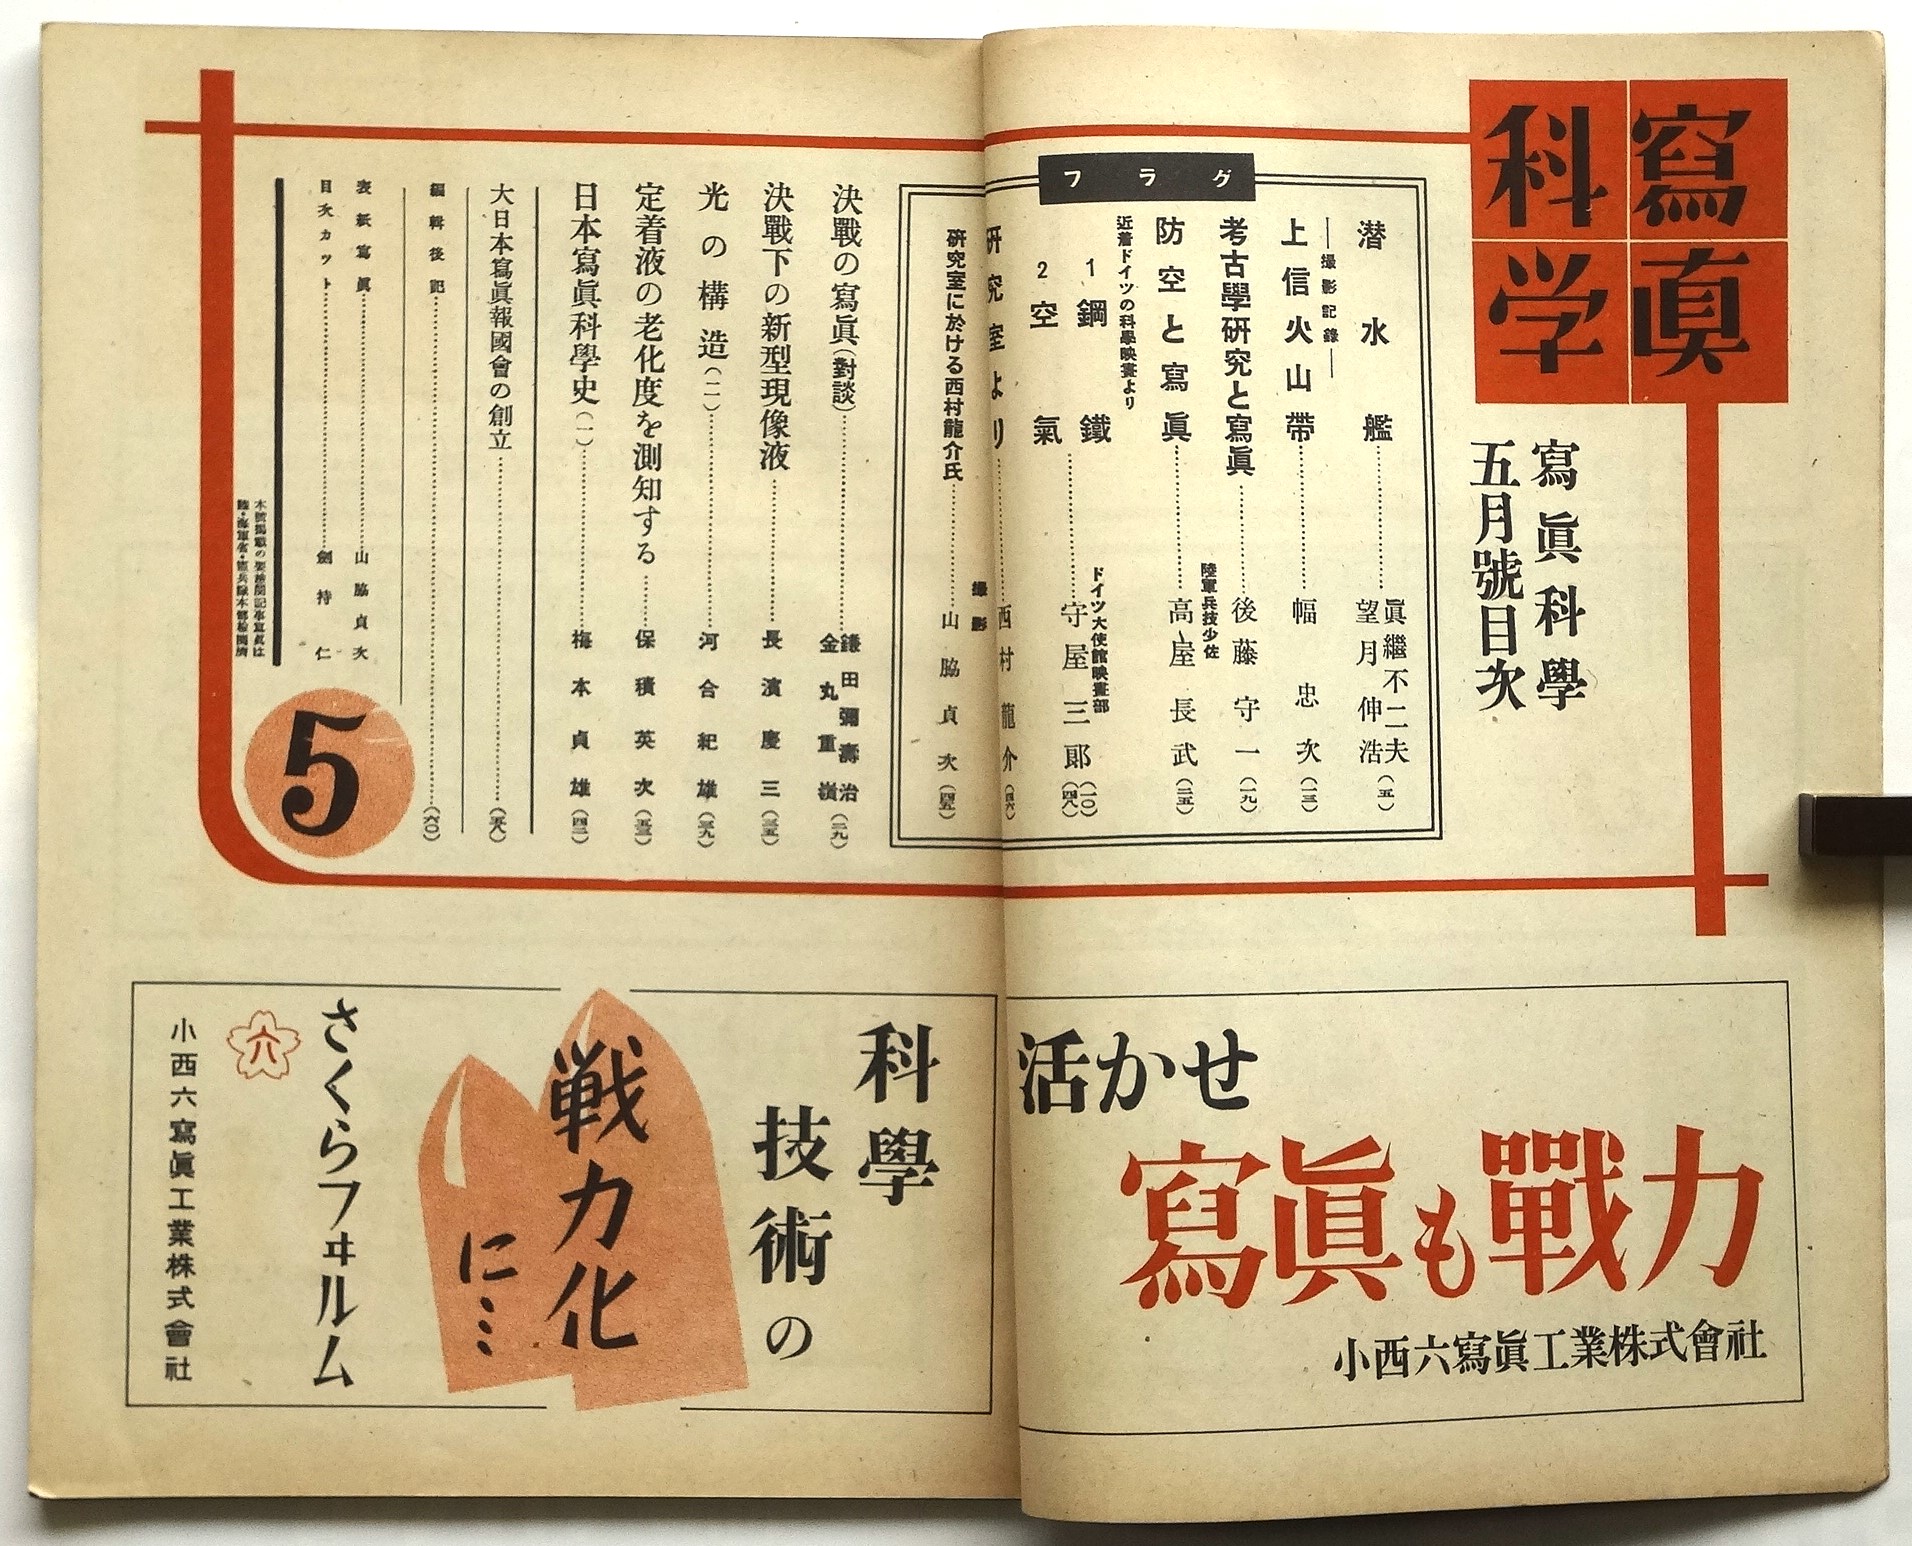 寫眞
科学
寫眞科學
五月號目次
グラフ
潜水艦……眞繼不二夫
望月伸浩(五)
―撮影記錄―
上信火山帶……幅忠次(一三)
考古學硏究と寫眞……後藤守一(一九)
陸軍兵技少佐
防空と寫眞……高屋長武(二五)
近着ドイツの科學映畫より
1 鋼鐵
2 空氣
ドイツ大使館映畫部
守屋三郞(一〇)(四八)
硏究室より……西村龍介(四六)
硏究室に於ける西村龍介氏……撮影
山脇貞次(四五)
決戰の寫眞(對談)……鎌田彌壽治
金丸重嶺(二九)
決戰下の新型現像液……長濱慶三(三五)
光の構造(二)……河合紀雄(三九)
定着液の老化度を測知する……保積英次(五三)
日本寫眞科學史(一)……梅本貞雄(四二)
大日本寫眞報國會の創立……(五八)
編輯後記……(六〇)
表紙寫眞……山脇貞次
目次カット……劍持仁
5
活かせ
寫眞も戰力
小西六寫眞工業株式會社
科學
技術の
戦力化
に…
さくらフヰルム
六
小西六寫眞工業株式會社